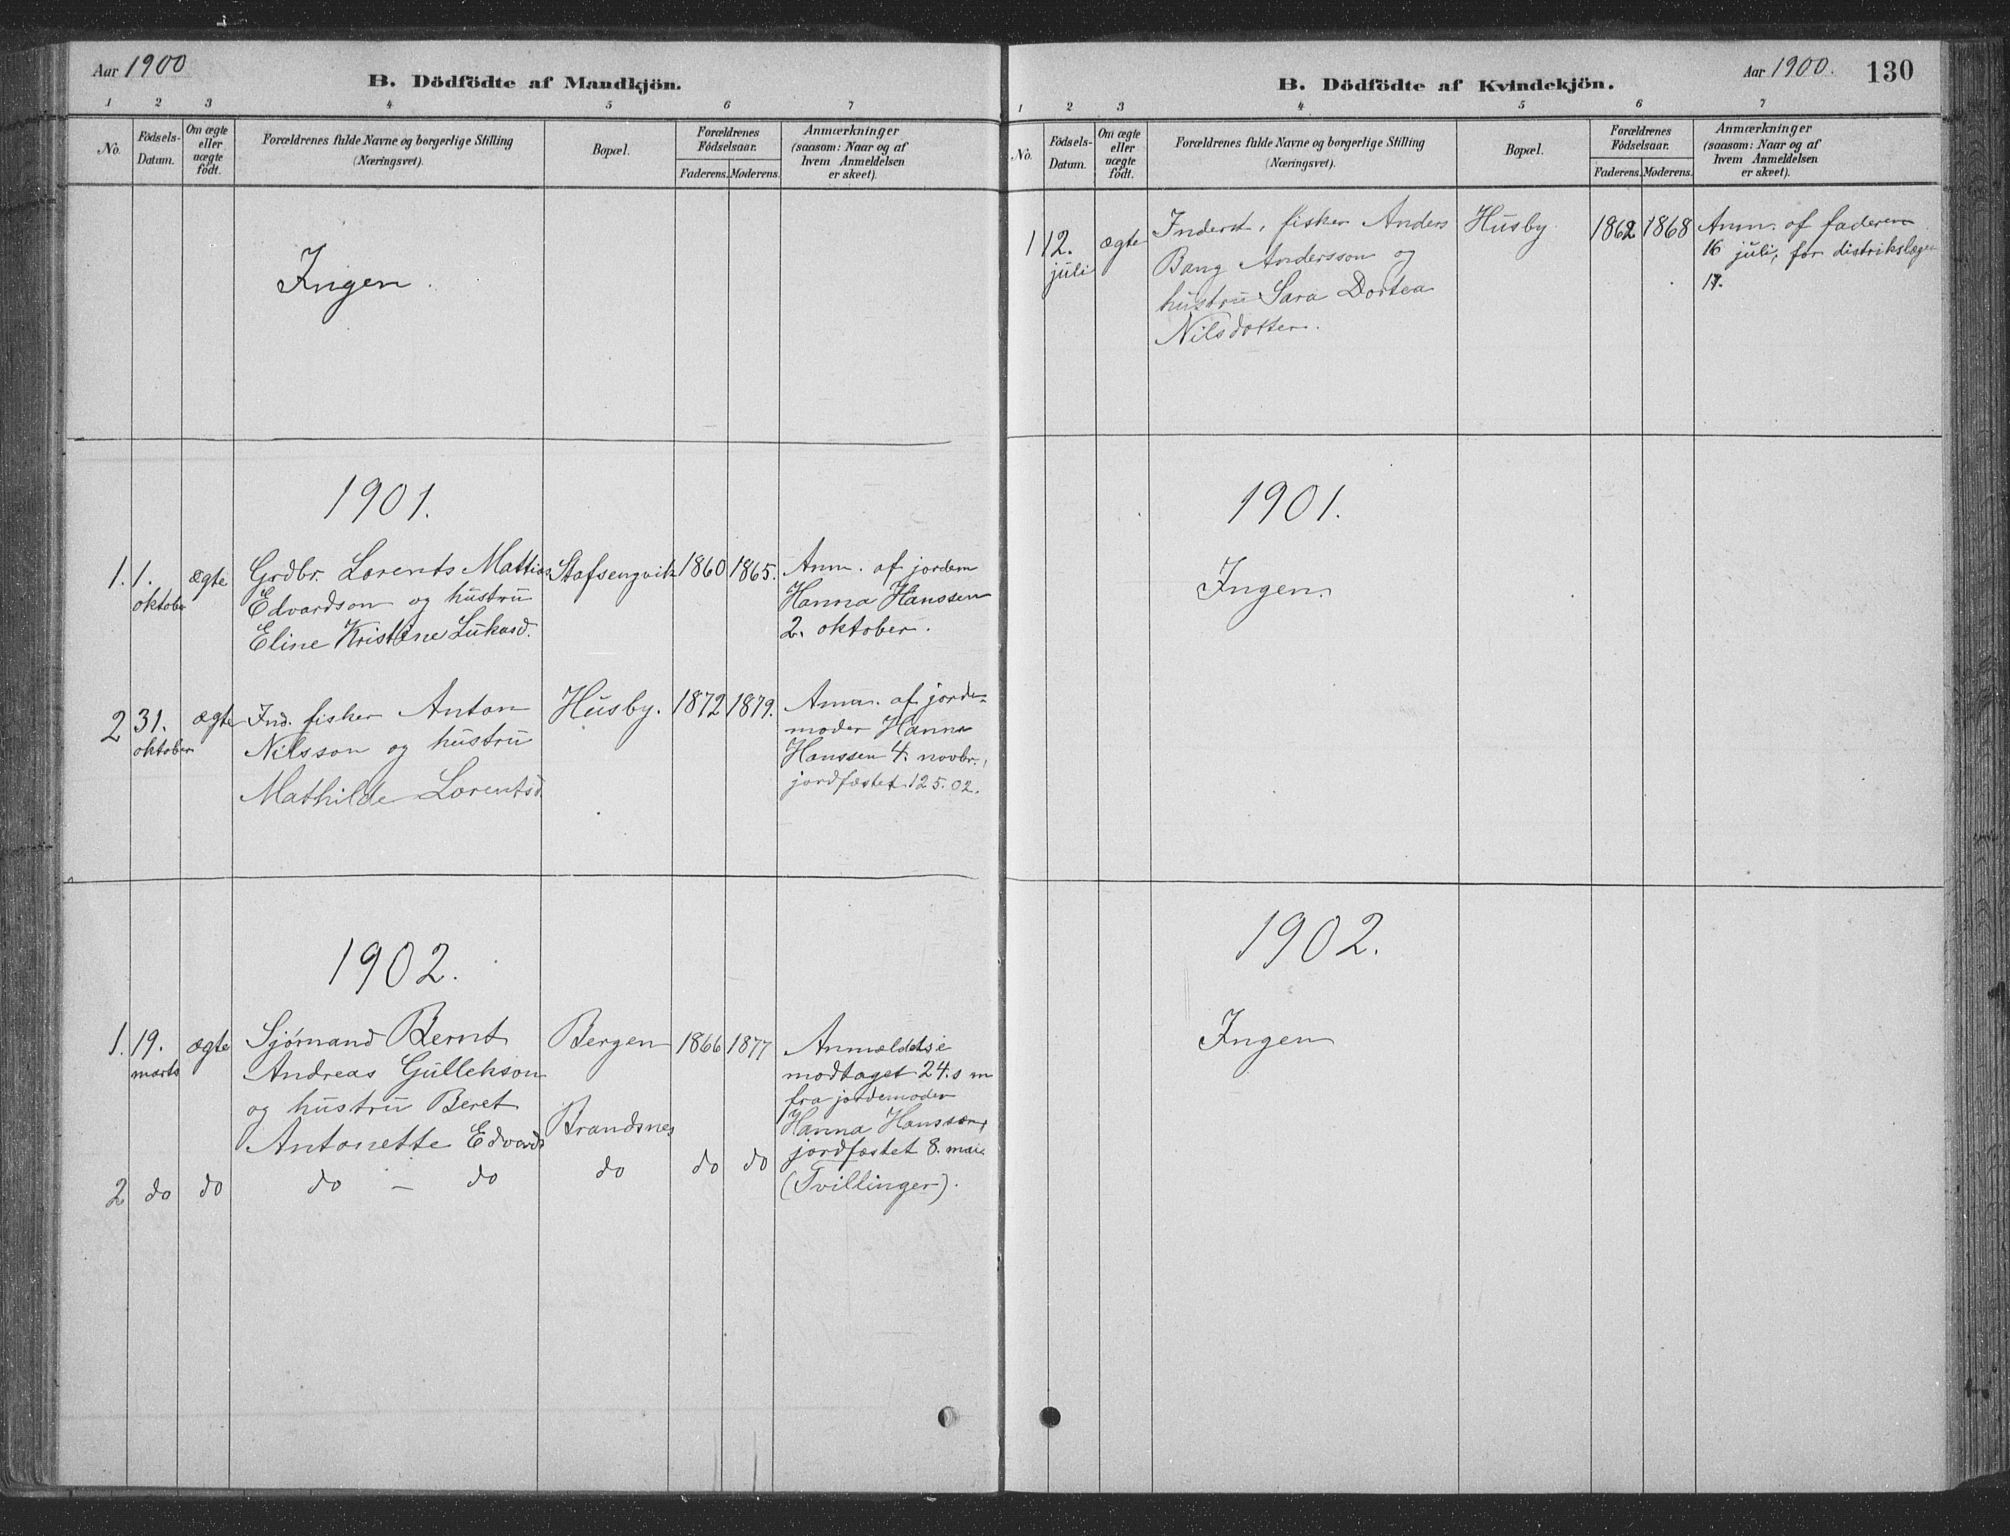 Aar 1900
B. Dödfödte af Mandkjön.
1 2 3 4 5 6 7
No. Födsels-Datum. Om ægte eller uægte födt. Forældrenes fulde Navne og borgerlige Stilling (Næringsvei). Bopæl. Forældrenes Födselsaar. Faderens. Moderens. Anmærkninger (saasom: Naar og af hvem Anmeldelsen er skeet).
Ingen.
1901.
1. 1. ægte Grdbr. Lorents Mattias Stafsengvik 1860 1865. Anm. af jordem
oktober Edvardson og hustru Hanna Hanssen
Eline Kristine Lukasd. 2. oktober.
2 31. ægte Ind. fisker Anton Husby. 1872 1879. Anm. af jorde-
oktober Nilsson og hustru moder Hanna
Mathilde Lorentsd Hanssen 4. novbr.,
jordfæstet 12 5. 02.
1902.
1. 19. ægte Sjømand Bernt Bergen 1866 1877 Anmeldelse
marts Andreas Gullekson modtaget 24. s m
og hustru Beret fra jordemoder
Antonette Edvards Brandsnes Hanna Hanssen,
jordfæstet 8. mai
2 do do do - do do do do (Tvillinger).
Aar 1900. 130
B. Dödfödte af Kvindekjön.
1 2 3 4 5 6 7
No. Födsels-Datum. Om ægte eller uægte födt. Forældrenes fulde Navne og borgerlige Stilling (Næringsvei). Bopæl. Forældrenes Födselsaar. Faderens. Moderens. Anmærkninger (saasom: Naar og af hvem Anmeldelsen er skeet).
1 12. ægte Inderst, fisker Anders Husby. 1862 1868 Anm. af faderen
juli Bang Andersson og 16 juli, for distriktslægen
hustru Sara Dortea 17.
Nilsdotter.
1901.
Ingen.
1902.
Ingen